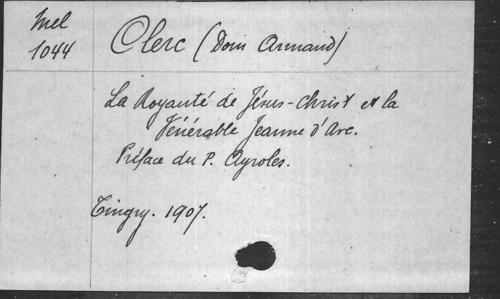 Mel
1044
Clerc (Dom Armand)
La Royauté de Jésus-Christ et la
Vénérable Jeanne d'Arc.
Préface du P. Ayroles.
Tingry. 1907.